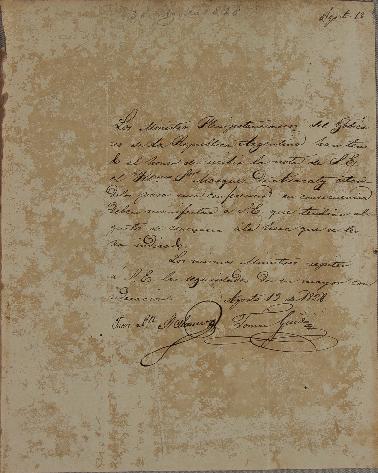 Agosto 12
Los Ministros Plenipotenciarios del Gobier-
no de la Republica Argentina han teni-
do el honor de recibir la nota de S.E.
el Señor Marques de Aracaty citan-
doles para una conferencia; en consecuencia
deben manifestar a S.E. que tendran el
gusto de concurrir a la hora que se les
ha indicado.
Los mismos Ministros repiten
a S.E. las seguridades de su mayor con-
sideracion. Agosto 12 de 1828
Juan Tomas Guido